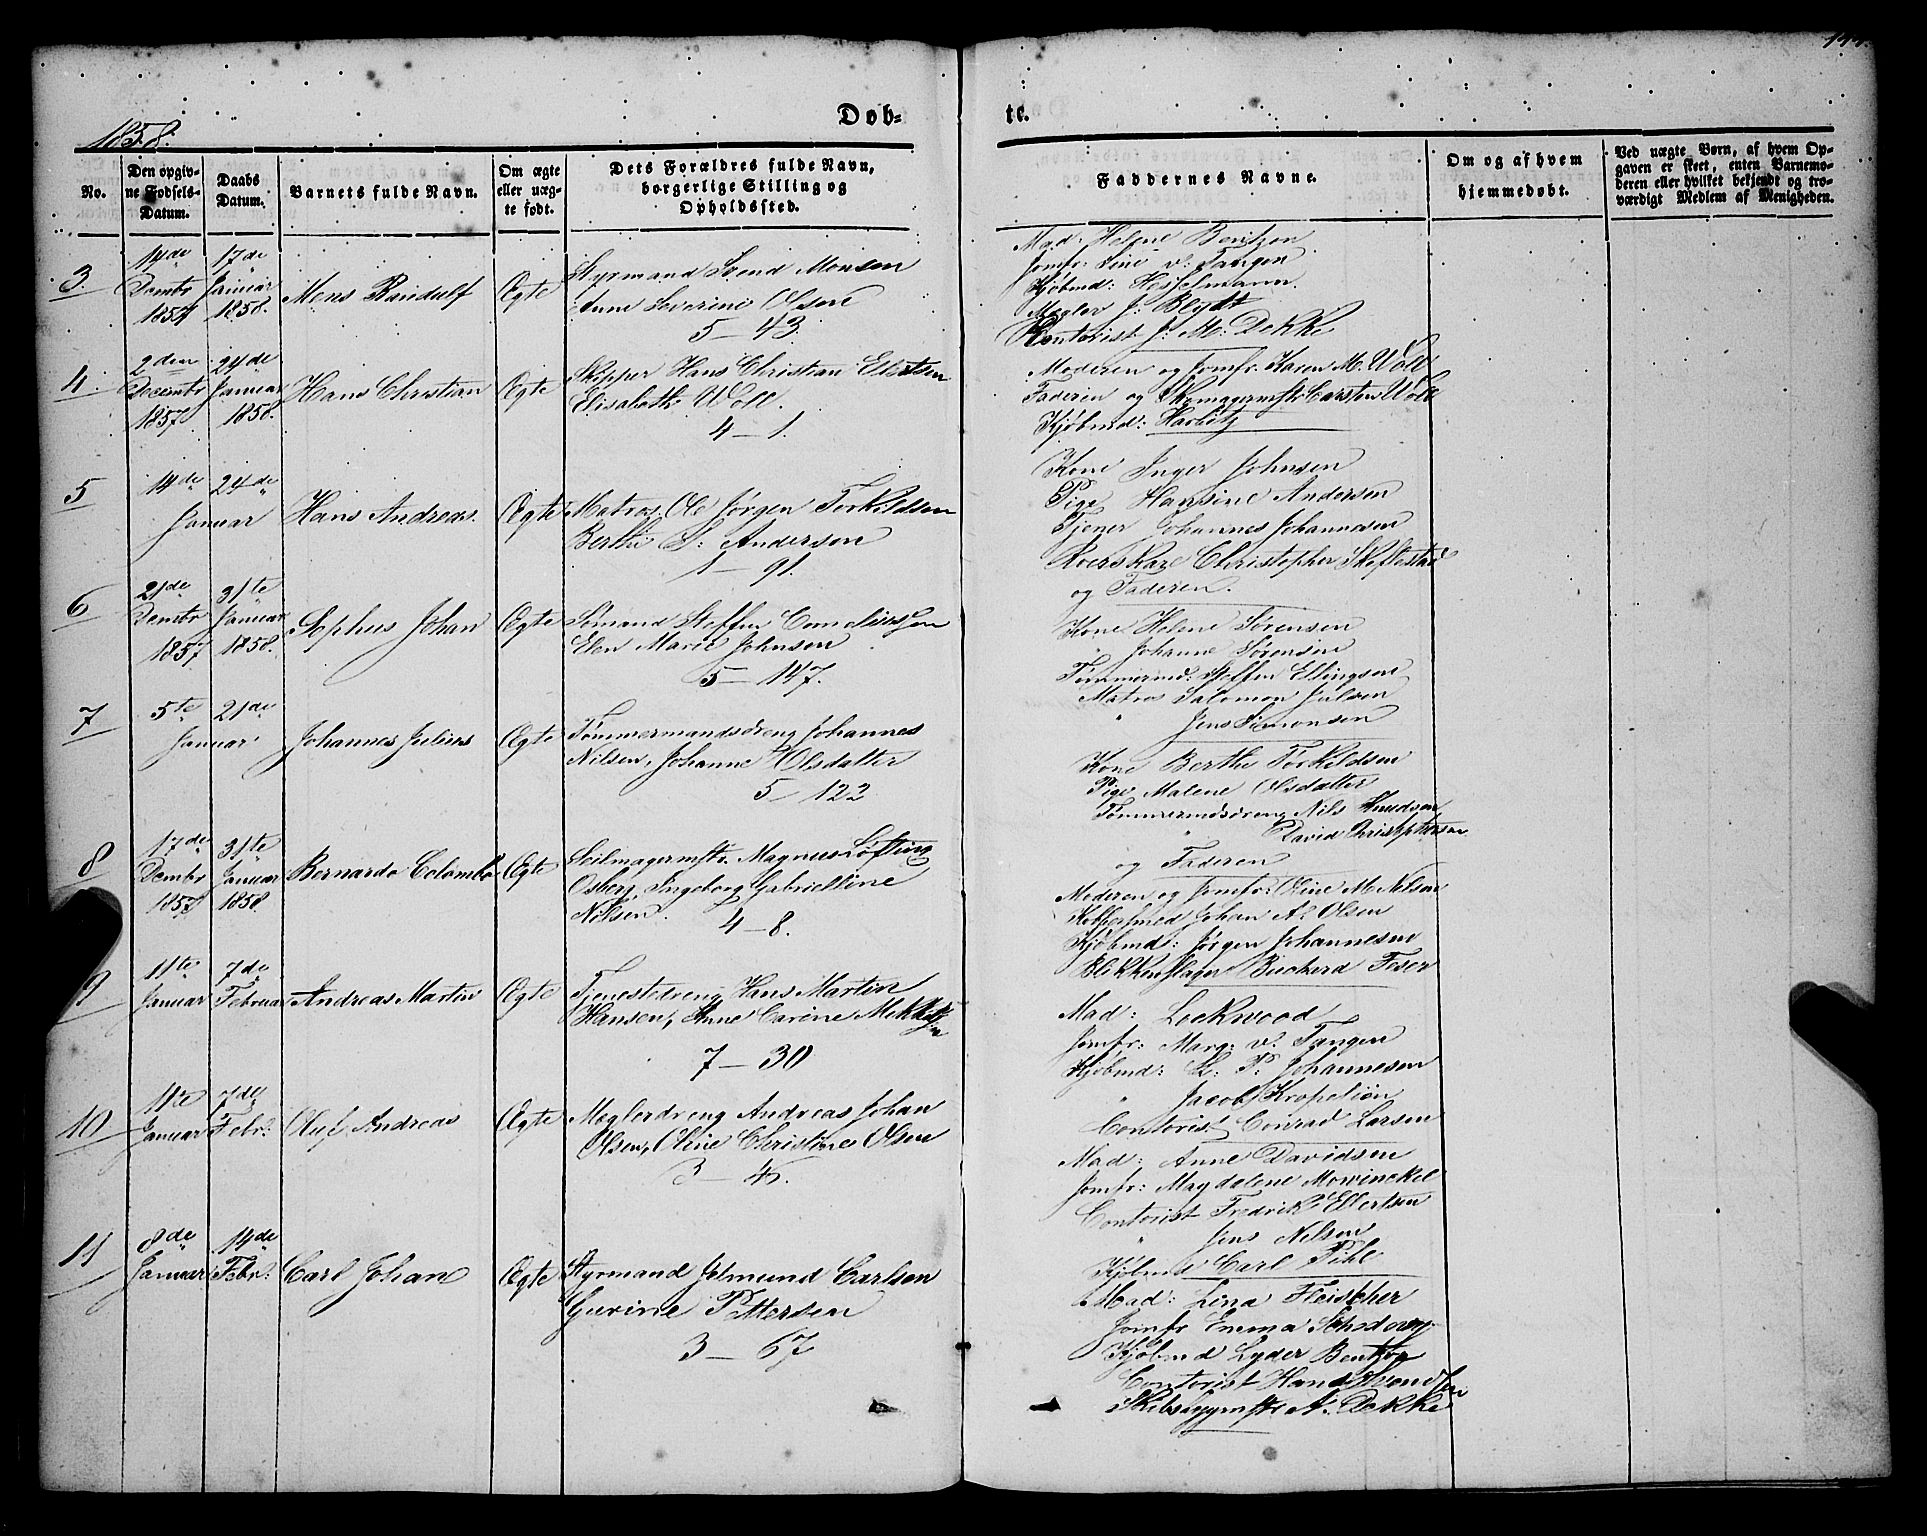 144.
Døb=
te.
1858.
No.
Den opgiv-
ne Fødsels-
Datum.
Daabs
Datum.
Barnets fulde Navn.
Om ægte
eller uæg-
te født.
Dets Forældres fulde Navn,
borgerlige Stilling og
Opholdssted.
Faddernes Navne.
Om og af hvem
hjemmedøbt.
Ved uægte Børn, af hvem Op-
gaven er skeet, enten Barnemo-
deren eller hvilket bekjendt og tro-
værdigt Medlem af Menigheden.
3.
14de
Decmbr
1857
17de
Januar
1858.
Mons Randulf
Ægte
Styrmand Svend Monsen
Anne Severine Olsen
5 — 43.
Mad: Helene Bentzon
Jomfr: Line v: Tangen
Kjøbmd: Hesselmann.
Megler J: Blydt
Contorist J: M: Dekke
4
2den
Decembr
1857
24de
Januar
1858.
Hans Christian
Ægte
Skipper Hans Christian Ellertsen
Elisabeth Woll.
4 — 1.
Moderen og Jomfr. Karen M. Woll
Faderen og Skomagermstr Carsten Woll
Kjøbmd: Harbitz
5
14de
Januar
24de
Hans Andreas.
Ægte
Matros, Ole Jørgen Torkildsen
Berthe S: Andersen
1 — 91.
Kone Inger Johnsen
Pige Hansine Andersen
Tjener Johannes Johannesen
Roerskarl Christopher Skeftestad
og Faderen.
6
21de
Decmbr
1857
31te
Januar
1858.
Sophus Johan
Ægte
Sømand Steffen Corneliussen
Elen Marie Johnsen
5 — 147.
Kone Helene Sørensen
" Johanne Sørensen
Tømmermd: Steffen Ellingsen
Matros Salomon Julsen
" Jens Simonsen
7
5te
Januar
21de
Johannes Julius
Ægte
Tømmermandsdreng Johannes
Nilsen, Johanne Olsdatter
5 — 122
Kone Berthe Torkildsen
Pige Malene Olsdatter
Tømmermdsdreng Nils Knudsen
" David Christophersen
og Faderen
8
17de
Decmbr
1857
31te
Januar
1858.
Bernardo Colombo
Ægte
Seilmagermstr. Magnus Løfting
Osberg, Ingeborg Gabrielline
Nilsen.
4 — 8.
Moderen og Jomfr: Oline M. Nilsen
Kobbersmed Johan A. Olsen
Kjøbmd: Jørgen Johannesen
Blikkenslager Bucherd Feser
9
11te
Januar
7de
Februar
Andreas Martin
Ægte
Tjenestedreng Hans Martin
Hansen, Anne Carine
7 — 30
Mad: Lockwood
Jomfr: Marg: v: Tangen
Kjøbmd: L: P: Johannesen
" Jacob Kropelien
Contorist Conrad Larsen
10
11te
Januar
7de
Febr:
Oluf Andreas
Ægte
Meglerdreng Andreas Johan
Olsen, Oline Christine Olsen
3 — 45.
Mad: Anne Davidsen
Jomfr: Magdalene Mowinckel
Contorist Fredrik Ellertsen
" Jens Nilsen
Kjøbmd Carl Pihl
11
8de
Januar
14de
Febr:
Carl Johan
Ægte
Styrmand Jelmund Carlsen
Gurine Pettersen
3 — 67
Mad: Lina Fleischer
Jomfr Emma
Kjøbmd Lyder Bentzon
Contorist Hans Svendsen
Skibsbygmstr A. Dekke